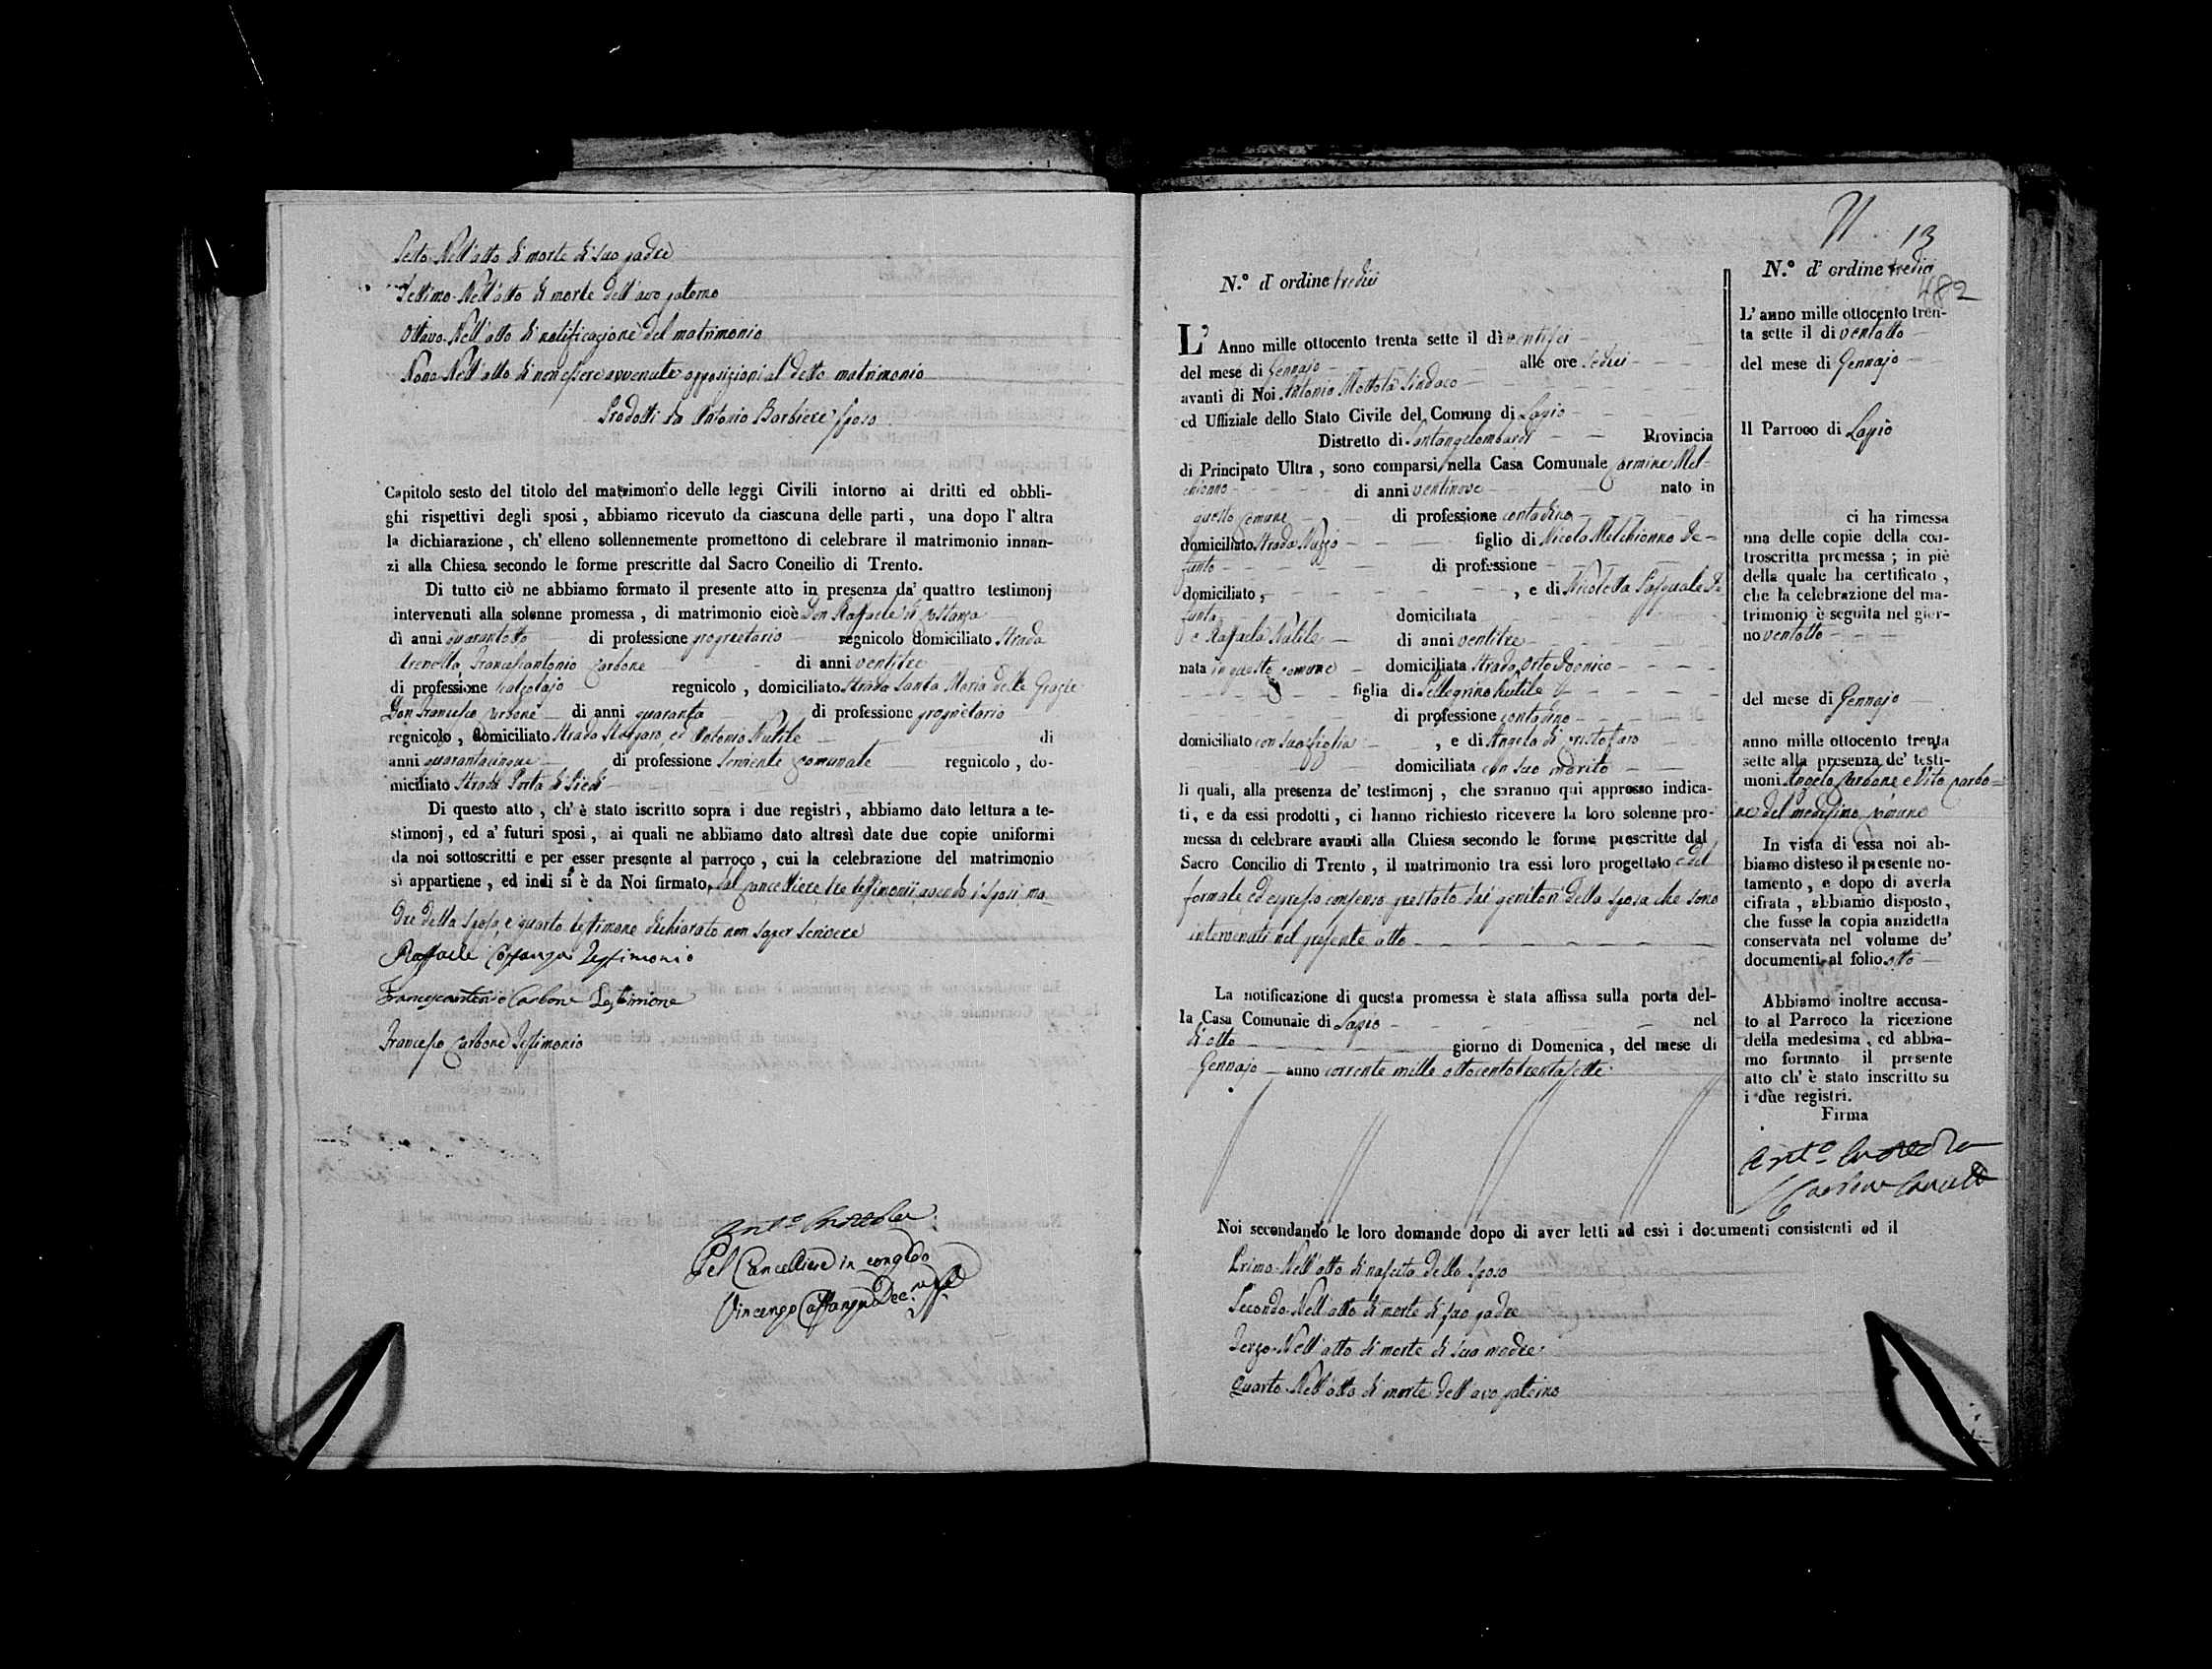 Sesto. Nell'atto di morte di suo padre
Settimo. Nell'atto di morte dell'avo paterno
Ottavo. Nell'atto di notificazione del matrimonio
Nono. Nell'atto di non essere avvenute opposizioni al detto matrimonio
Prodotti da Antonio Barbiere sposo
Capitolo sesto del titolo del matrimonio delle leggi Civili intorno ai dritti ed obbli-
ghi rispettivi degli sposi, abbiamo ricevuto da ciascuna delle parti, una dopo l'altra
la dichiarazione, ch'elleno sollennemente promettono di celebrare il matrimonio innan-
zi alla Chiesa secondo le forme prescritte dal Sacro Concilio di Trento.
Di tutto ciò ne abbiamo formato il presente atto in presenza da' quattro testimonj
intervenuti alla solenne promessa, di matrimonio cioè Don Raffaele di Costanza
di anni quarantotto di professione proprietario regnicolo domiciliato Strada
Arenella, Francescantonio Carbone di anni ventitre
di professione calzolajo regnicolo, domiciliato Strada Santa Maria delle Grazie
Don Francesco Carbone di anni quaranta di professione proprietario
regnicolo, domiciliato Strada ed Antonio Rutile di
anni quarantacinque di professione serviente comunale regnicolo, do-
miciliato Strada Porta di Piedi
Di questo atto, ch'è stato iscritto sopra i due registri, abbiamo dato lettura a te-
stimonj, ed a' futuri sposi, ai quali ne abbiamo dato altresì date due copie uniformi
da noi sottoscritti e per esser presente al parroco, cui la celebrazione del matrimonio
si appartiene, ed indi si è da Noi firmato, dal Cancelliere tre testimonii avendo i sposi ma-
dre della sposa, e quarto testimone dichiarato non saper scrivere
Raffaele Costanza Testimonio
Francescantonio Carbone Testimone
Francesco Carbone Testimonio
Pel Cancelliere in congedo
Vincenzo Costanza
13
N.° d'ordine tredici
L'Anno mille ottocento trenta sette il dì ventisei
del mese di Gennajo alle ore sedici
avanti di Noi Antonio Mottola Sindaco
ed Uffiziale dello Stato Civile del Comune di Lapio
Distretto di Santangelombardi Provincia
di Principato Ultra, sono comparsi nella Casa Comunale Carmine Mel-
chionno di anni ventinove nato in
questo Comune di professione contadino
domiciliato Strada Nuzzo figlio di Nicola Melchionno de-
funto di professione
domiciliato, , e di Nicoletta Pasquale de
funta domiciliata
e Raffaela Rutile di anni ventitre
nata in questo comune domiciliata Strada Orto Doonico
figlia di Pellegrino Rutile
di professione contadino
domiciliato con sua figlia, e di Angela di Cristofaro
domiciliata con suo marito
li quali, alla presenza de' testimonj, che saranno qui appresso indica-
ti, e da essi prodotti, ci hanno richiesto ricevere la loro solenne pro-
messa di celebrare avanti alla Chiesa secondo le forme prescritte dal
Sacro Concilio di Trento, il matrimonio tra essi loro progettato e del
formale, ed espresso consenso prestato dai genitori della sposa che sono
intervenuti nel presente atto
La notificazione di questa promessa è stata affissa sulla porta del-
la Casa Comunale di Lapio nel
dì otto giorno di Domenica, del mese di
Gennajo anno corrente mille ottocentotrentasette
Noi secondando le loro domande dopo di aver letti ad essi i documenti consistenti ed il
Primo. Nell'atto di nascita dello sposo
Secondo. Nell'atto di morte di suo padre
Terzo. Nell'atto di morte di sua madre
Quarto. Nell'atto di morte dell'avo paterno
N.° d'ordine tredici
482
L'anno mille ottocento tren-
ta sette il di ventotto
del mese di Gennajo
Il Parroco di Lapio
ci ha rimessa
una delle copie della con-
troscritta premessa; in piè
della quale ha certificato,
che la celebrazione del ma-
trimonio è seguita nel gior-
no ventotto
del mese di Gennajo
anno mille ottocento trenta
sette alla presenza de' testi-
moni Angelo Carbone e Vito Carbo-
ne del medesimo Comune
In vista di essa noi ab-
biamo disteso il presente no-
tamento, e dopo di averla
cifrata, abbiamo disposto,
che fusse la copia anzidetta
conservata nel volume de'
documenti al folio otto
Abbiamo inoltre accusa-
to al Parroco la ricezione
della medesima, ed abbia-
mo formato il presente
atto ch'è stato inscritto su
i due registri.
Firma